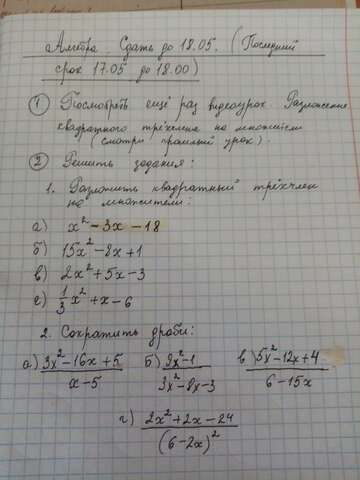 Алгебра. Сдать до 18.05. (Последний
срок 17.05 до 18.00)
1 Посмотреть ещё раз видеоурок. Разложение
квадратного трёхчлена на множители
(смотри прошлый урок).
2 Решить задания:
1. Разложить квадратный трёхчлен
на множители:
а) x² - 3x - 18
б) 15x² - 8x + 1
в) 2x² + 5x - 3
г) 1/3 x² + x - 6
2. Сократить дроби:
а) (3x² - 16x + 5)/(x - 5) б) (9x² - 1)/(3x² - 8x - 3) в) (5x² - 12x + 4)/(6 - 15x)
г) (2x² + 2x - 24)/(6 - 2x)²